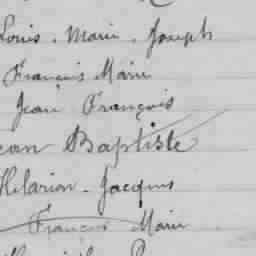 Louis. Marie. Joseph
François Marie
Jean François
Jean Baptiste
Hilarion. Jacques
François Marie